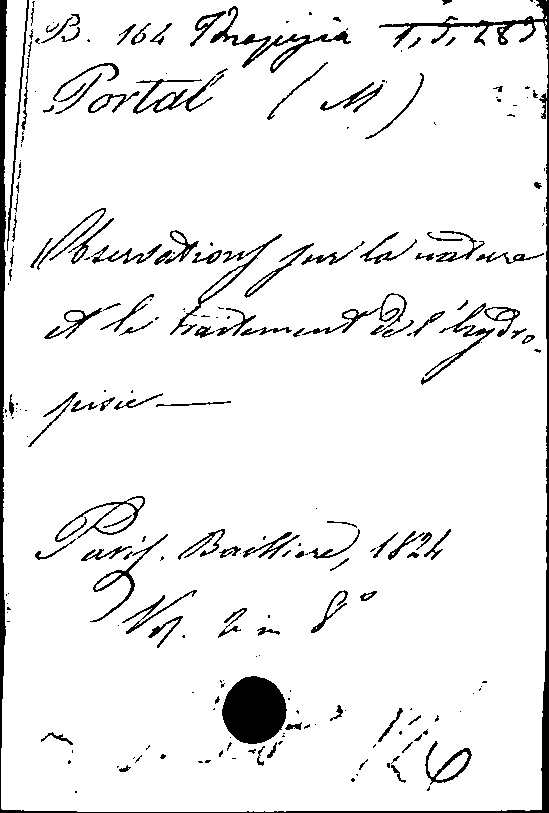 B. 164 1,5,283
Portal (M)
Observations sur la nature
et le traitement de l'hydro-
pisie —
Paris. Baillière, 1824
Vol. 2 in 8°
126